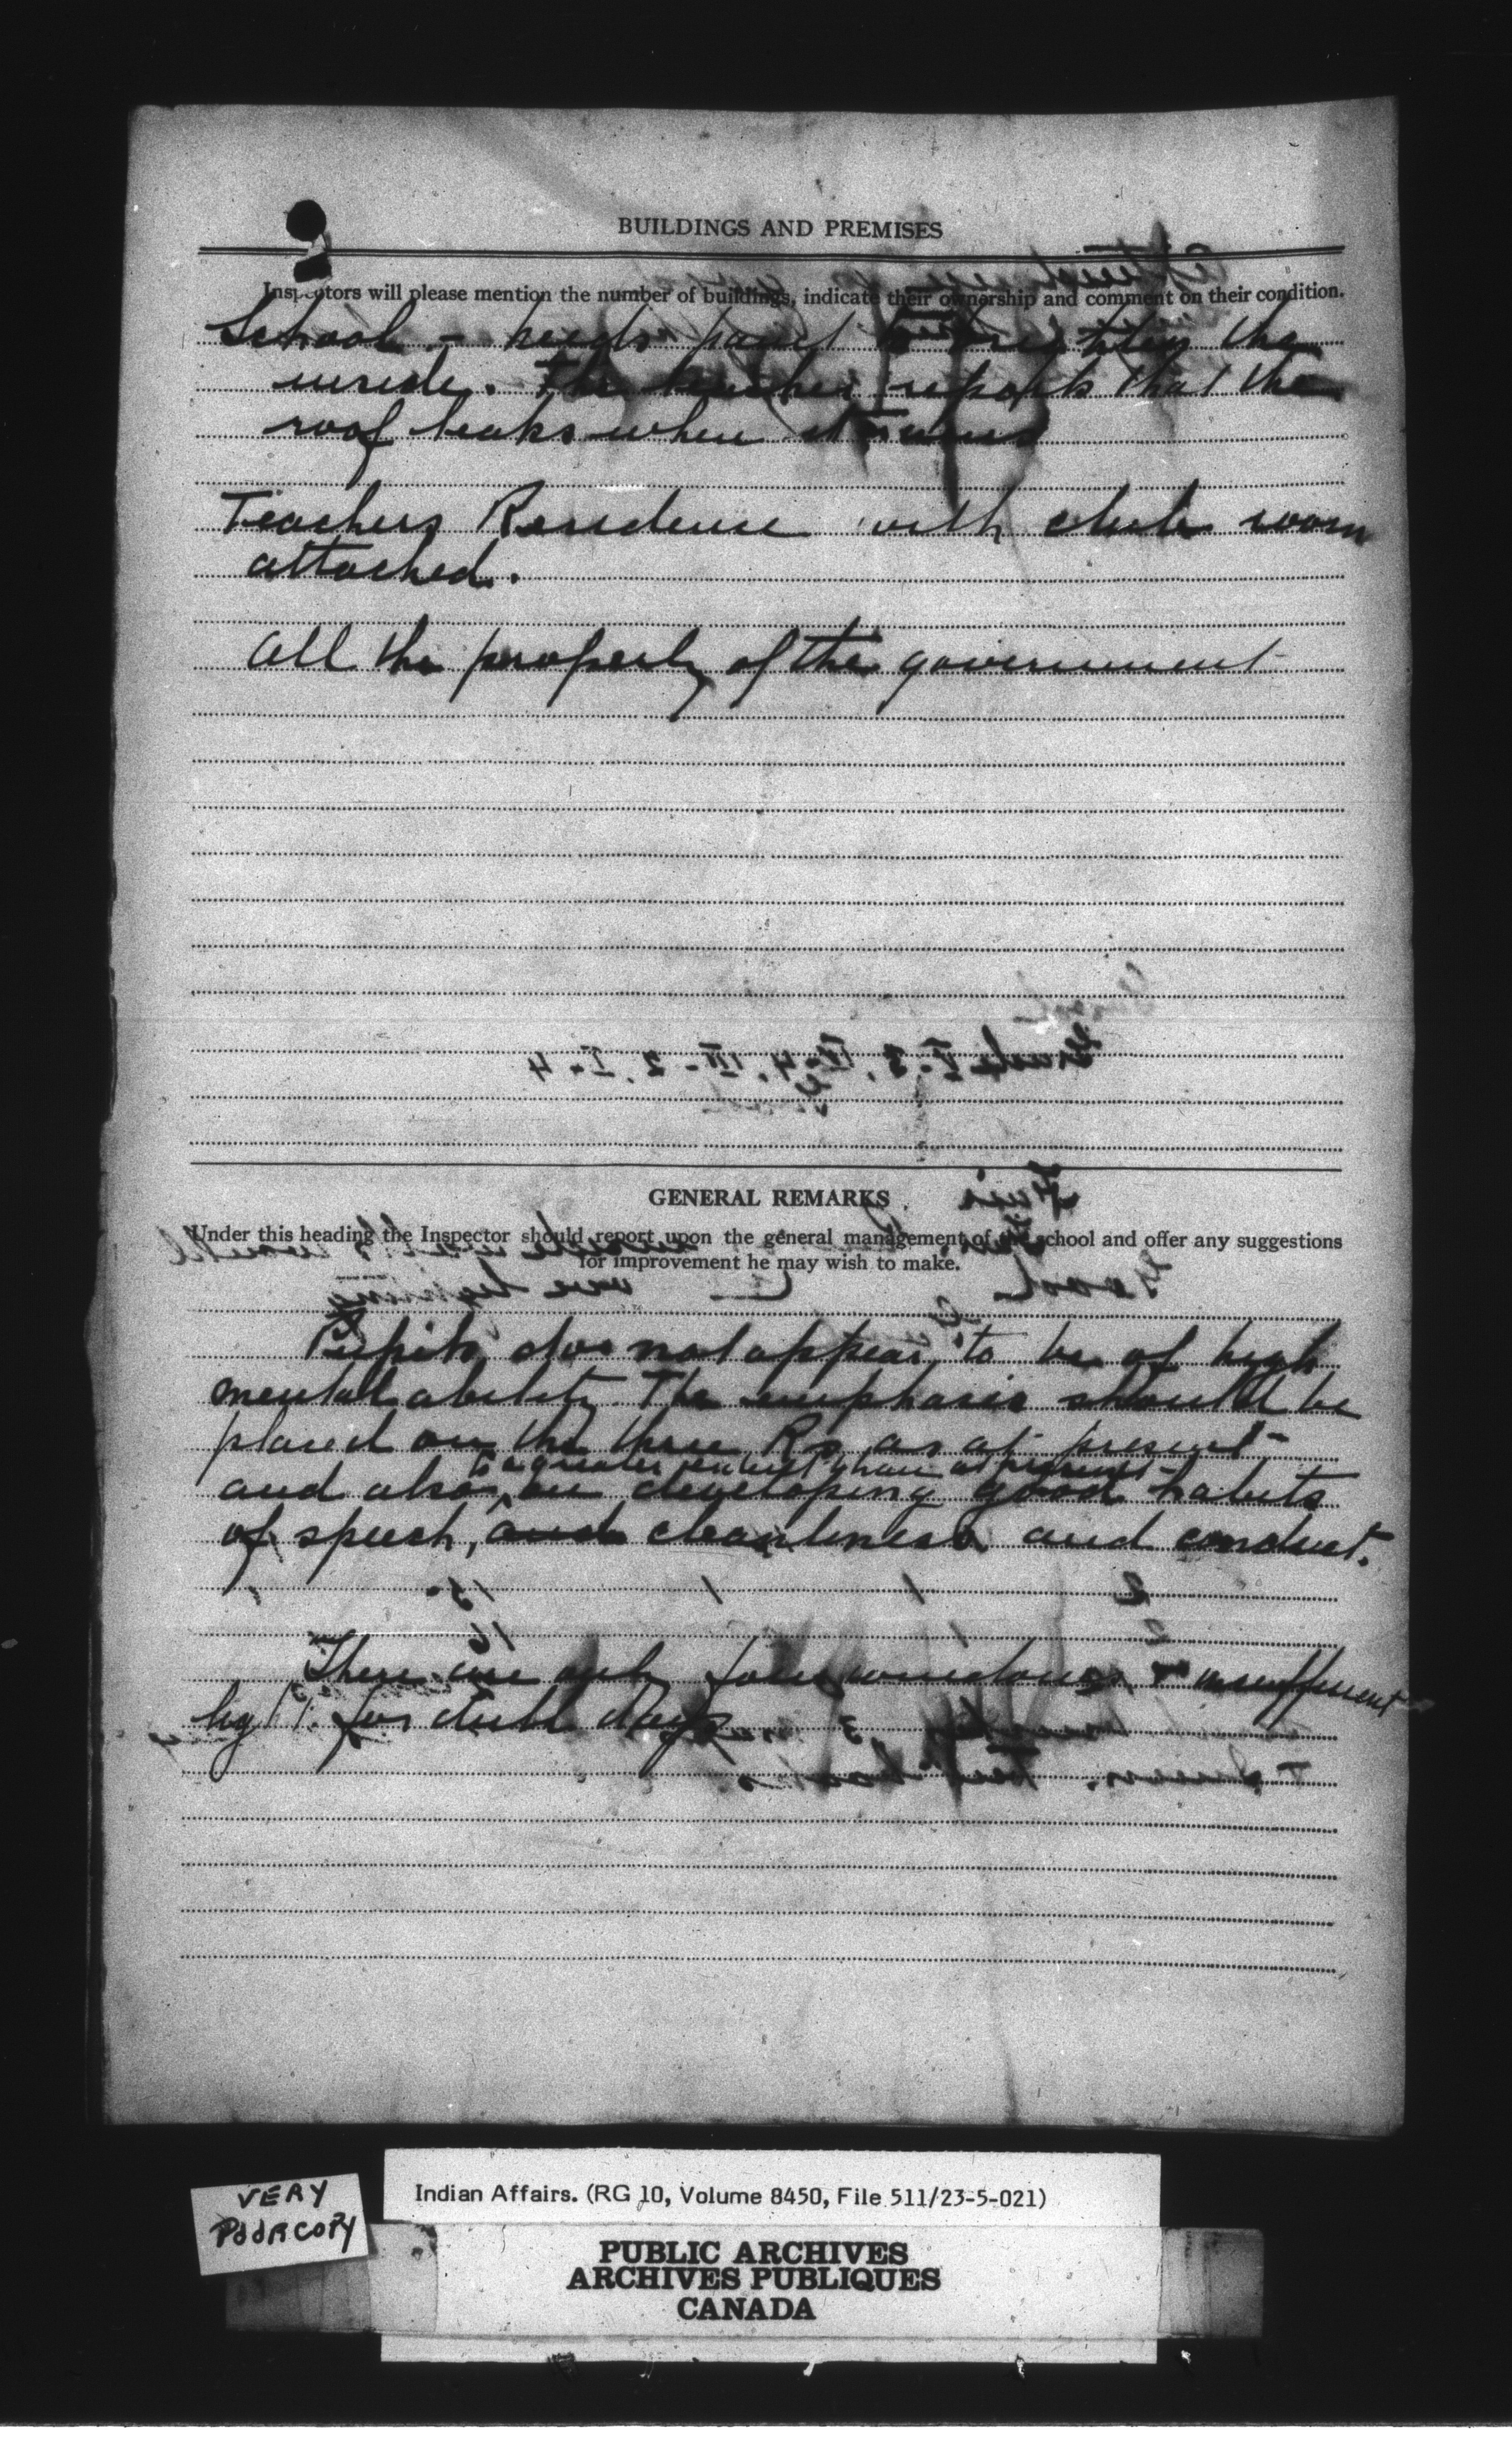 BUILDINGS AND PREMISES
Inspectors will please mention the number of buildings, indicate their ownership and comment on their condition.
School - needs paint to brighten the
inside. The teacher reports that the
roof leaks when it rains
Teachers Residence with club room
attached.
All the property of the government
GENERAL REMARKS
Under this heading the Inspector should report upon the general management of the school and offer any suggestions
for improvement he may wish to make.
Pupils do not appear to be of high
mental ability. The emphasis should be
placed on the three Rs as at present
to a greater extent than at present
and also on developing good habits
of speech, and cleanliness and conduct.
There are only four windows - insufficient
light for dull days
VERY
POOR COPY
Indian Affairs. (RG 10, Volume 8450, File 511/23-5-021)
PUBLIC ARCHIVES
ARCHIVES PUBLIQUES
CANADA